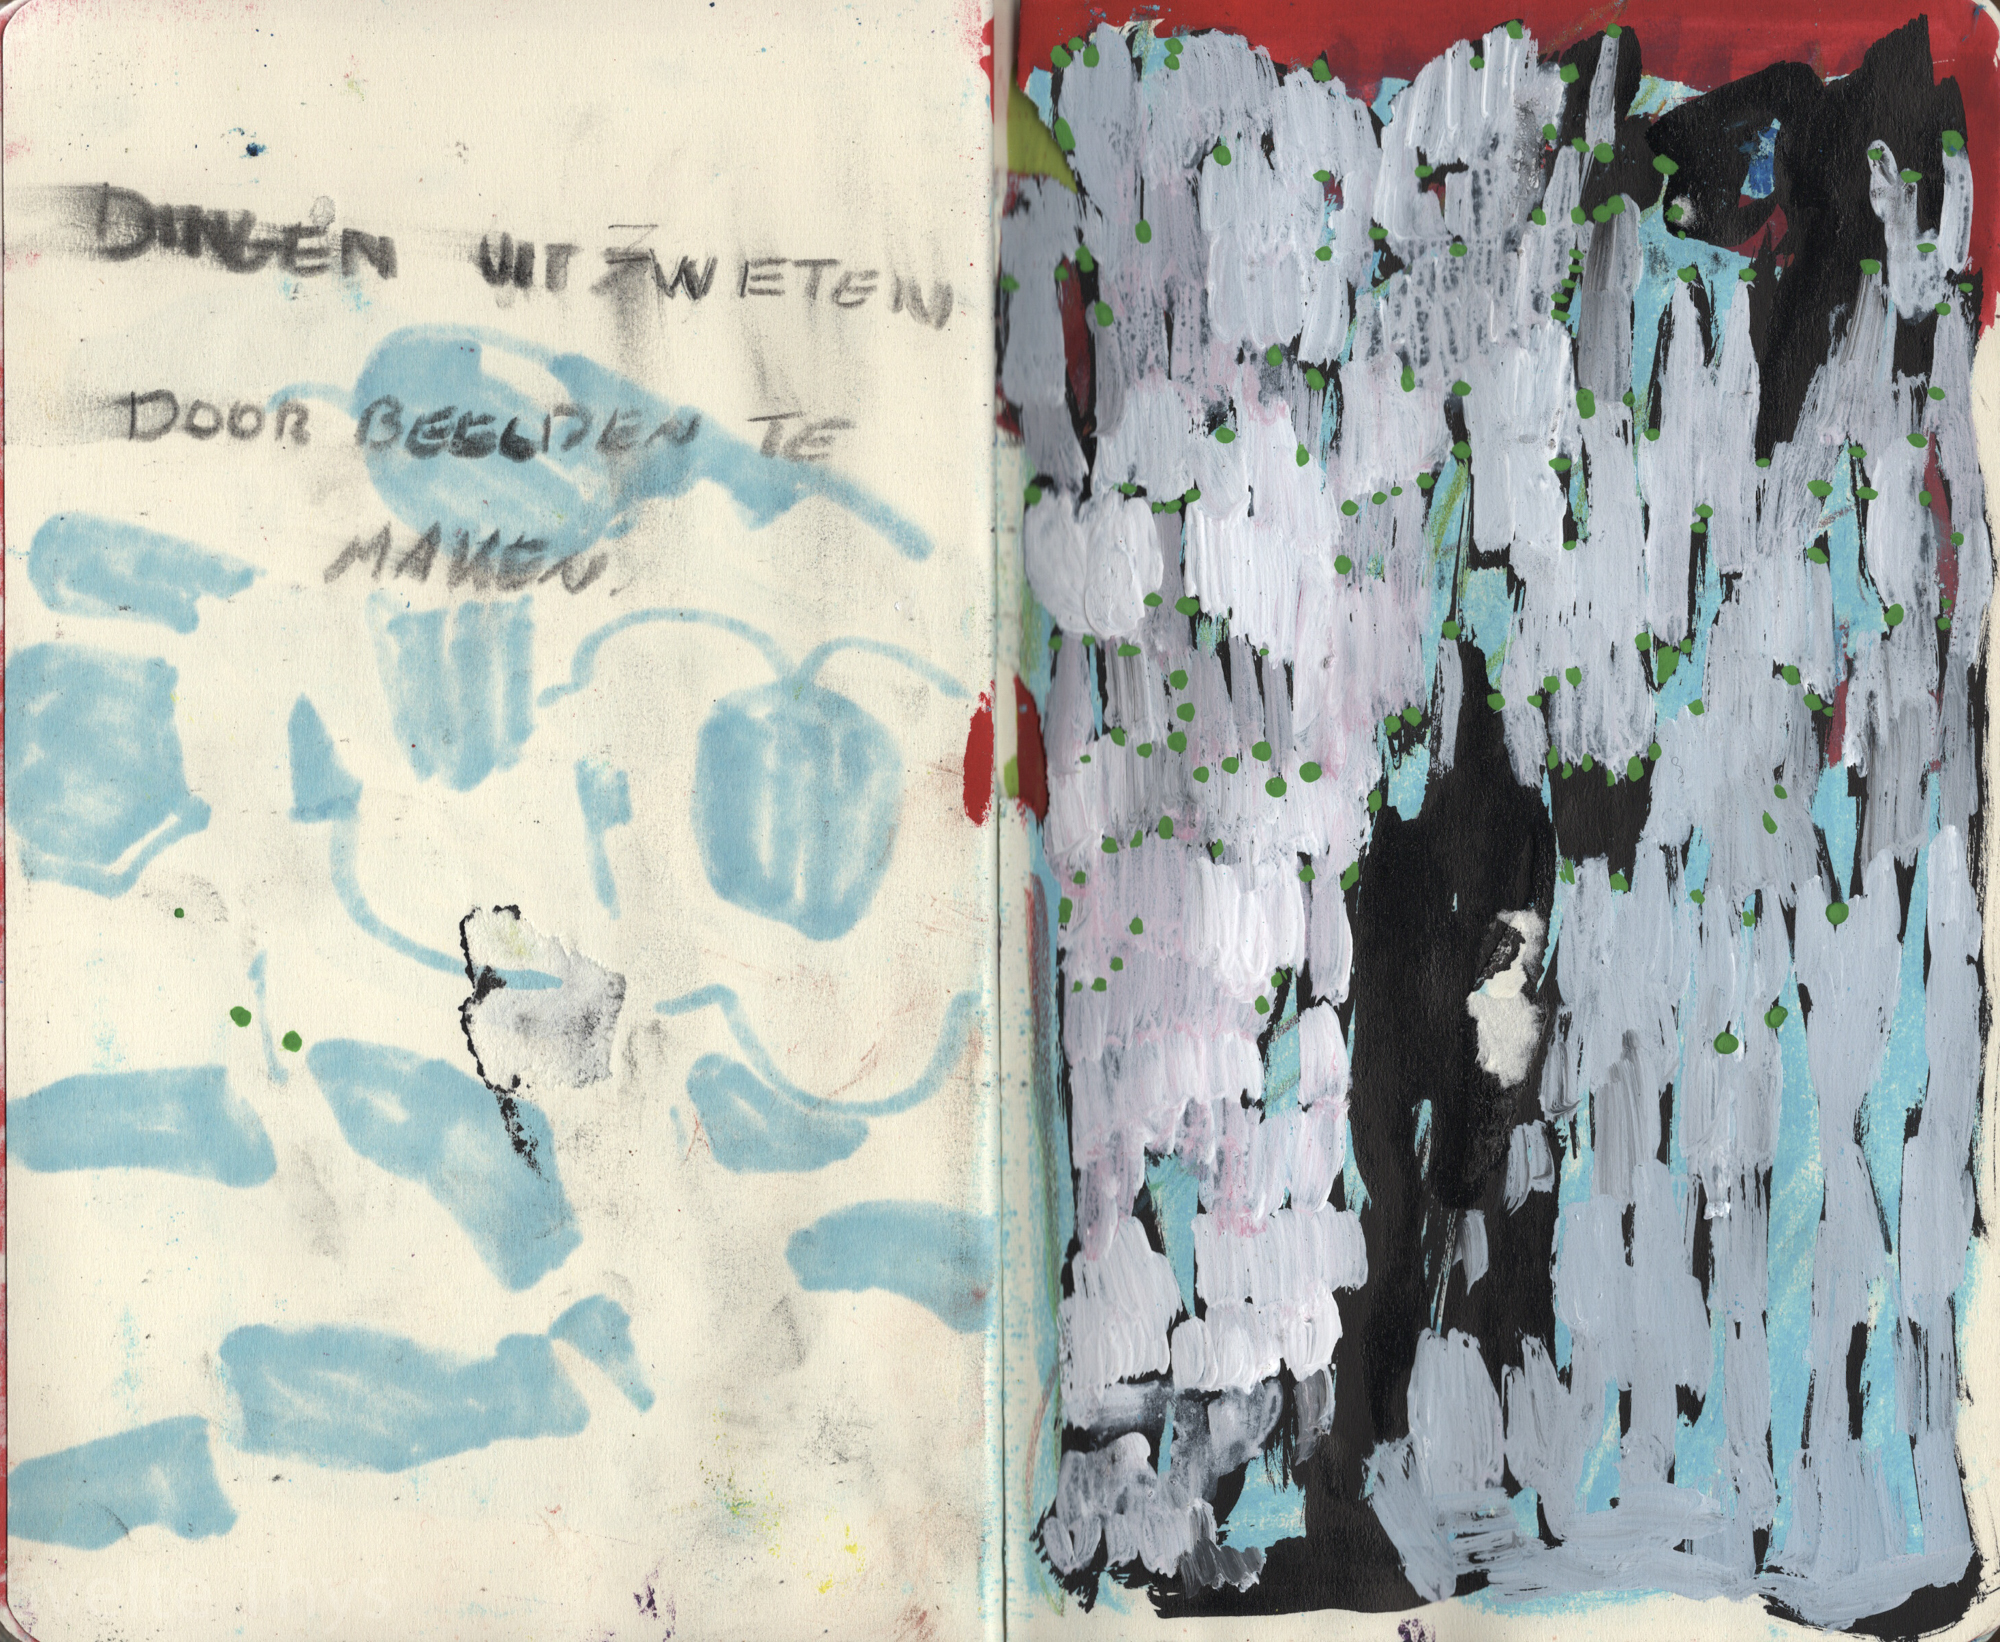 DINGEN UITZWETEN
DOOR BEELDEN TE
MAKEN.